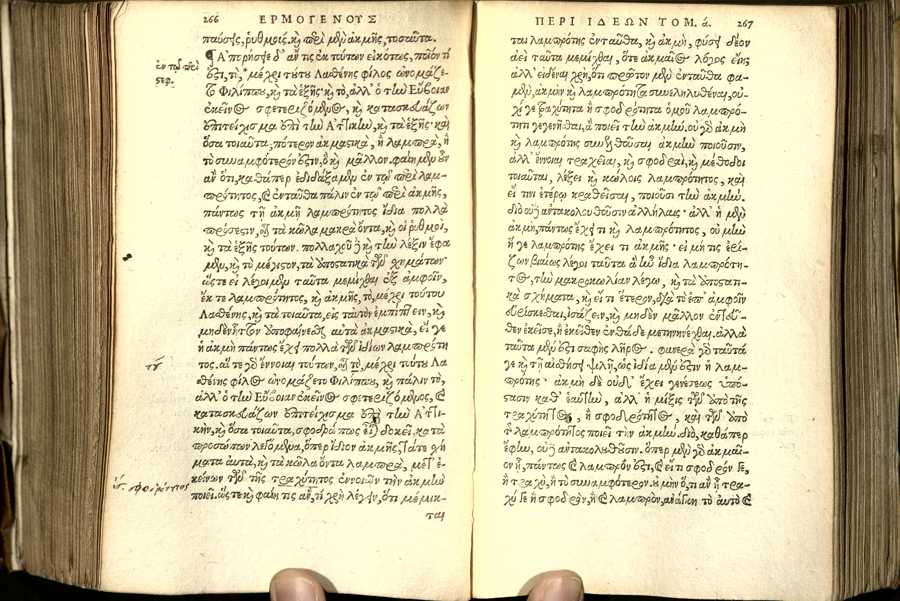 266 ΕΡΜΟΓΕΝΟΥΣ
παύσης, ῥυθμοῖς. καὶ περὶ μὲν ἀκμῆς, τοσαῦτα.
¶ Ἀπορήσῃε δ' ἄν τις ἐκ τούτων εἰκότως, ποῖόν τί
ἐστι, τὸ, μέχρι τούτου Λασθένης φίλος ὠνομάζε-
το Φιλίππου, καὶ τὰ ἑξῆς· καὶ τὸ, ἀλλ' ὁ τὴν Εὔβοιαν
ἐκεῖνος σφετεριζόμενος, καὶ κατασκευάζων
ἐπιτείχισμα ἐπὶ τὴν Ἀττικὴν, καὶ τὰ ἑξῆς· καὶ
ὅσα τοιαῦτα, πότερον ἀκμαστικὰ, ἢ λαμπρὰ, ἢ
τὸ συναμφότερόν ἐστιν, ὃ καὶ μᾶλλον. φαμὲν οὖν
ἂν ὅτι, καθάπερ ἐδιδάξαμεν ἐν τῷ περὶ λαμ-
πρότητος, καὶ ἐνταῦθα πάλιν ἐν τῷ περὶ ἀκμῆς,
πάντως τῇ ἀκμῇ λαμπρότητος ἴδια πολλὰ
πρόσεστιν, τὰ κῶλα μακρὰ ὄντα, καὶ οἱ ῥυθμοὶ,
καὶ τὰ ἑξῆς τούτων. πολλαχοῦ δὲ καὶ τὴν λέξιν ἔφα
μεν, καὶ τὸ μέγιστον, τὰ ἀποστατικὰ τῶν σχημάτων
ὥστε εἰ λέγοιμεν ταῦτα μεμίχθαι ἐξ ἀμφοῖν,
ἔκ τε λαμπρότητος, καὶ ἀκμῆς, τὸ, μέχρι τούτου
Λασθένης, καὶ τὰ τοιαῦτα, εἰς ταὐτὸν ἐμπίπτειν, καὶ
μηδὲν ἧττον ἀποφαίνεσθαι αὐτὰ ἀκμαστικά, εἴ γε
ἡ ἀκμὴ πάντως ἔχει πολλὰ τῶν ἰδίων λαμπρότη
τος. αἵ τε γὰρ ἔννοιαι τούτων, τὸ, μέχρι τούτου Λα
σθένης φίλος ὠνομάζετο Φιλίππου, καὶ πάλιν τὸ,
ἀλλ' ὁ τὴν Εὔβοιαν ἐκεῖνος σφετεριζόμενος, καὶ
κατασκευάζων ἐπιτείχισμα ἐπὶ τὴν Ἀττι-
κήν, καὶ ὅσα τοιαῦτα, σφοδραί πως εἶναι δοκεῖ, κατὰ
προσώπων λεγόμενα, ὅπερ ἴδιον ἀκμῆς, τά τε σχή
ματα αὐτὰ, καὶ τὰ κῶλα ὄντα λαμπρά, μετ' ἐ-
κείνων τῶν τῆς τραχύτητος ἐννοιῶν τὴν ἀκμὴν
ποιεῖ. ὥστε καὶ φαίη τις ἂν, τί χρὴ λέγειν, ὅτι μέμικ-
ται
ΠΕΡΙ ΙΔΕΩΝ ΤΟΜ. ά. 267
ται λαμπρότης ἐνταῦθα, καὶ ἀκμὴ, φύσει δέον
ἀεὶ ταῦτα μεμίχθαι, ὅτε ἀκμαῖος λόγος εἴη;
ἀλλ' εἰδέναι χρὴ, ὅτι πρῶτον μὲν ἐνταῦθα φα-
μὲν, ἀκμὴν καὶ λαμπρότητα συνεληλυθέναι, οὐ-
χί γε τραχύτητα ἢ σφοδρότητα ὁμοῦ λαμπρό-
τητι γεγενῆσθαι, ἃ ποιεῖ τὴν ἀκμὴν, οὐ γὰρ ἀκμὴ
καὶ λαμπρότης συνελθοῦσαι ἀκμὴν ποιοῦσιν,
ἀλλ' ἔννοιαι τραχεῖαι, καὶ σφοδραὶ, καὶ μέθοδοι
τοιαῦται, λέξει καὶ κώλοις λαμπρότητος, καὶ
εἴ τινι ἑτέρῳ κραθεῖσαι, ποιοῦσι τὴν ἀκμήν.
διὸ οὐκ ἀντακολουθοῦσιν ἀλλήλαις· ἀλλ' ἡ μὲν
ἀκμὴ, πάντως ἔχει τι καὶ λαμπρότητος, οὐ μὴν
ἥ γε λαμπρότης ἔχει τι ἀκμῆς· εἰ μή τις ἐρί-
ζων βιαίως λέγοι ταῦτα ἃ ἦν ἴδια λαμπρότη-
τος, τὴν μακροκωλίαν λέγω, καὶ τὰ ἀποστατι-
κὰ σχήματα, καὶ εἴ τι ἕτερον, διὰ τὸ ἐπ' ἀμφοῖν
εὑρίσκεσθαι, ἰσάζειν, καὶ μηδὲν μᾶλλον ἐντεῦ-
θεν ἐκεῖσε, ἢ ἐκεῖθεν ἐνθάδε μετηνηνέχθαι, ἀλλὰ
ταῦτα μέν ἐστι σαφὴς λῆρος. φανερὰ γὰρ ταῦτά
γε καὶ τῇ αἰσθήσει ψιλῇ, ὡς ἰδία μέν ἐστιν ἡ λαμ-
πρότης· ἀκμὴ δὲ οὐδ' ἔχει γενέσεως ὑπό-
στασιν καθ' ἑαυτὴν, ἀλλ' ἡ μίξις τῶν ὑπὸ τῆς
τραχύτητος, ἢ σφοδρότητος, καὶ τῶν ὑπὸ
τῆς λαμπρότητος ποιεῖ τὴν ἀκμήν. διὸ, καθάπερ
ἔφην, οὐκ ἀντακολουθοῦσιν. ὅπερ μὲν γὰρ ἀκμαῖ-
ον ᾖ, πάντως καὶ λαμπρόν ἐστι, καὶ εἴ τι σφοδρόν γε,
ἢ τραχὺ, ἢ τὸ συναμφότερον. οὐ μὴν ὅ, τι ἂν ᾖ τρα-
χύ γε ἢ σφοδρὸν, ἢ καὶ λαμπρὸν, ἀνάγκη τὸ αὐτὸ καὶ